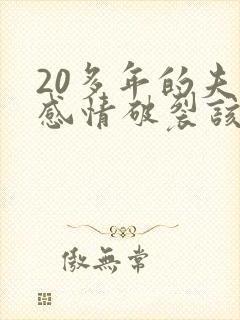 20多年的夫
感情破裂该
傲無常